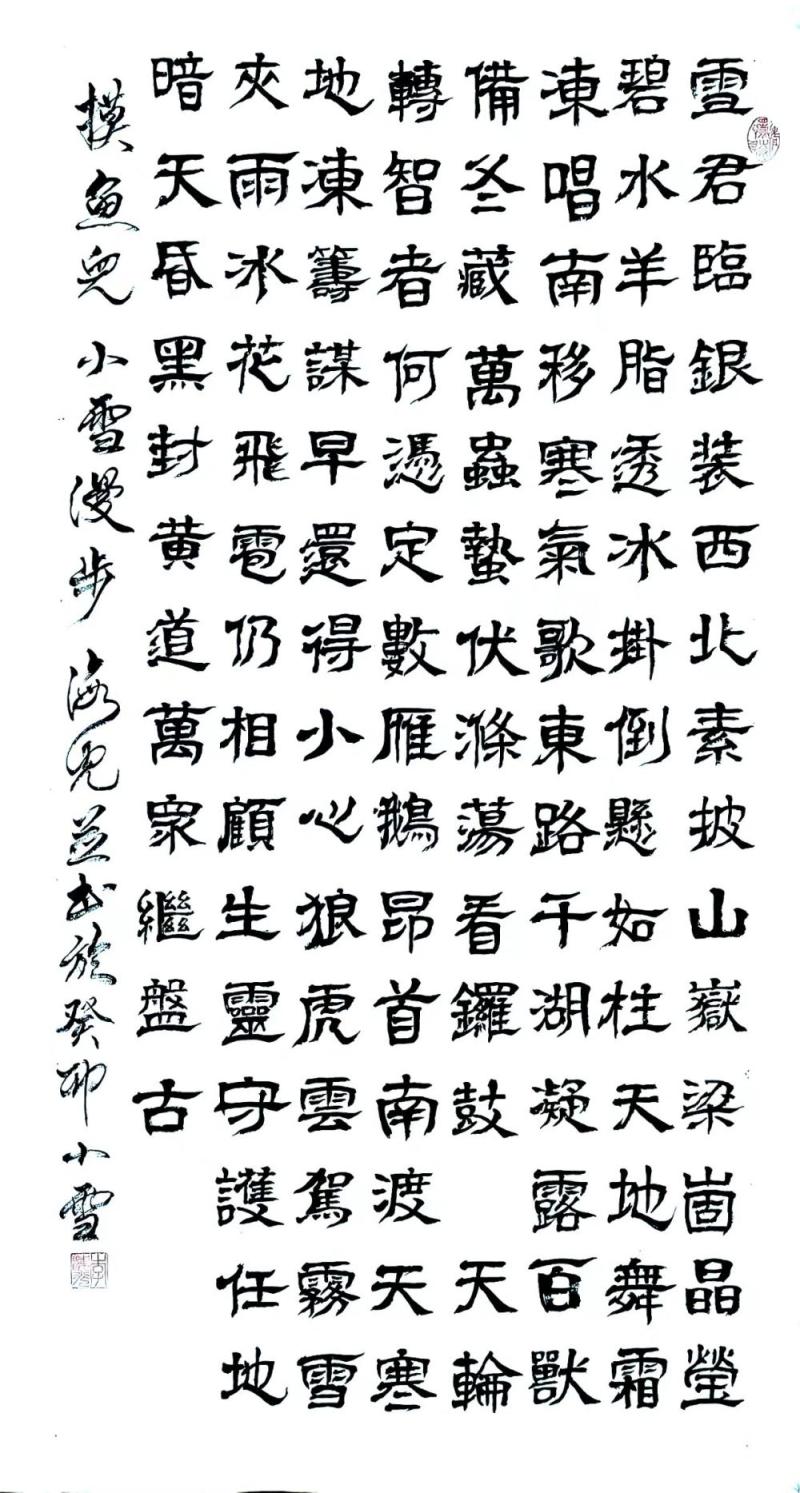 雪君臨銀装西北素披山嶽梁崮晶瑩
碧水羊脂透冰掛倒懸如柱天地舞霜
凍唱南移寒氣歌東路千湖凝露百獸
備冬藏萬蟲蟄伏滌蕩看鑼鼓 天輪
轉智者何憑定數雁鵝昂首南渡天寒
地凍籌謀早還得小心狼虎雲駕霧雪
夾雨冰花飛雹仍相顧生靈守護任地
暗天昏黑封黄道萬眾繼盤古
摸魚兒 小雪漫步 海兒並书於癸卯小雪